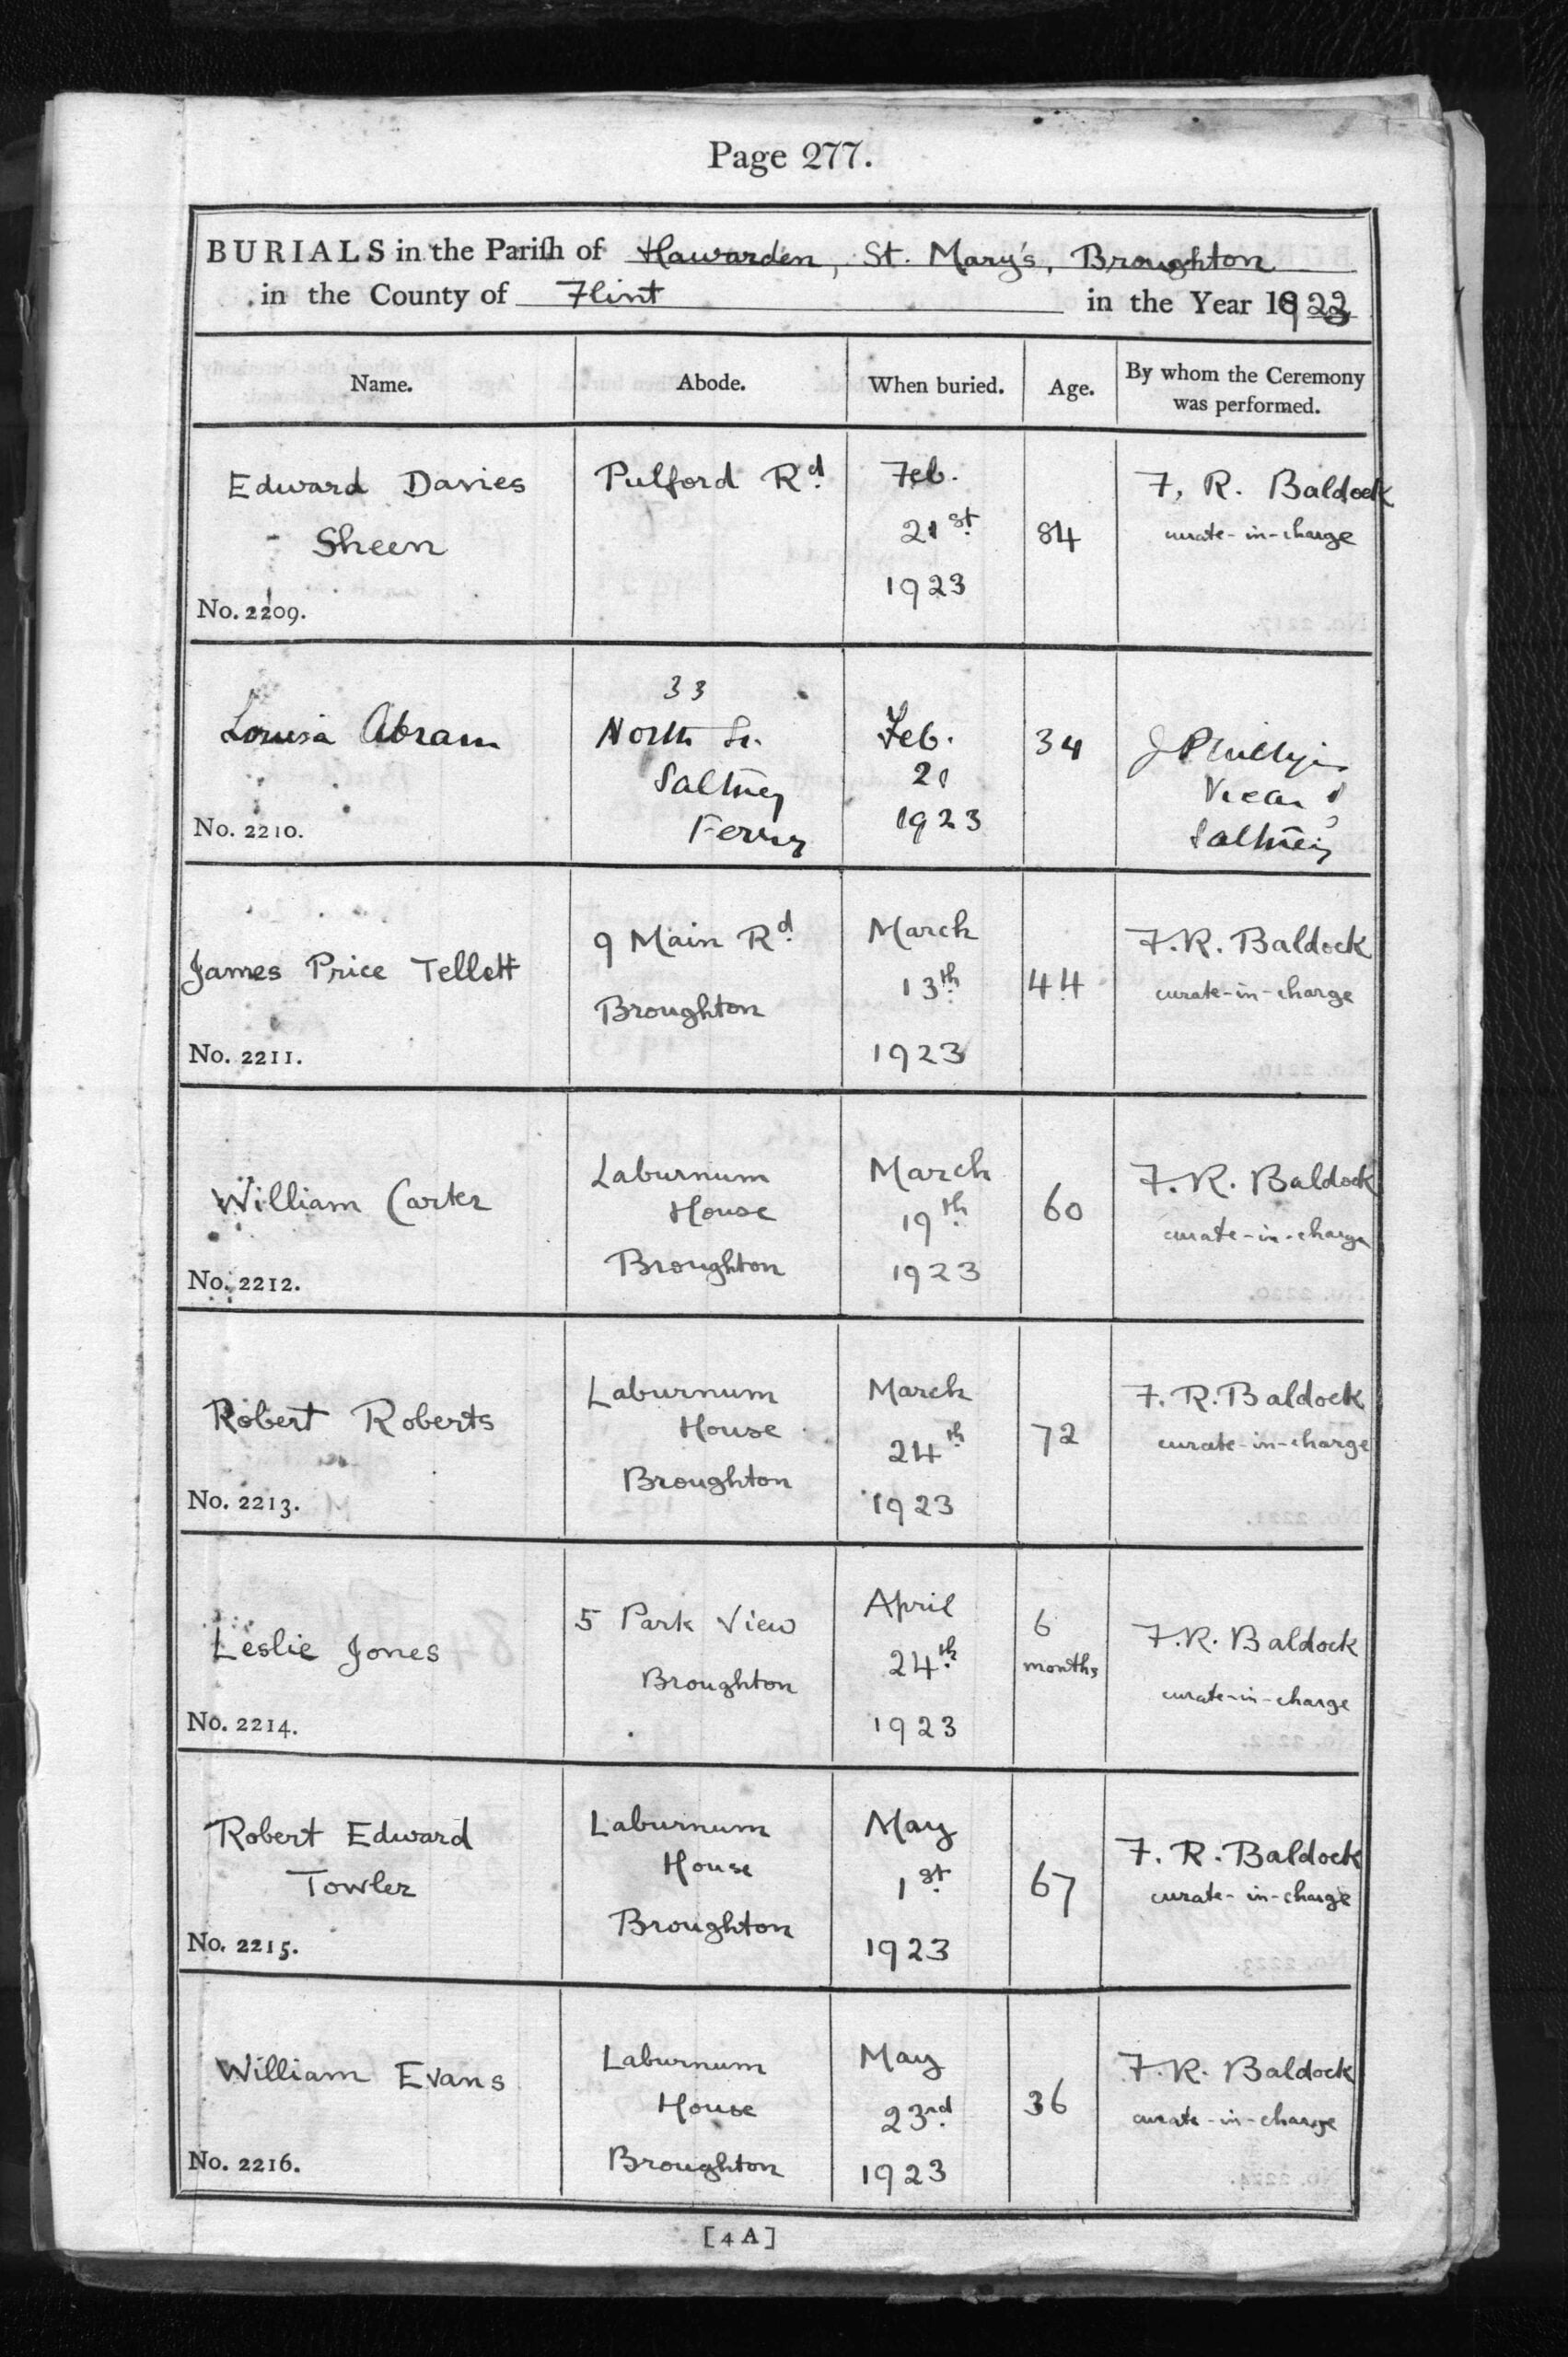 Page 277.
BURIALS in the Pariſh of Hawarden, St. Mary's, Broughton
in the County of Flint in the Year 1923
Name. Abode. When buried. Age. By whom the Ceremony was performed.
Edward Davies
Sheen
No. 2209.
Pulford Rd.
Feb.
21st
1923
84
F. R. Baldock
curate-in-charge
Louisa Abram
No. 2210.
33
North St.
Saltney
Ferry
Feb.
21
1923
34
J Phillips
Vicar of
Saltney
James Price Tellett
No. 2211.
9 Main Rd.
Broughton
March
13th
1923
44
F.R. Baldock
curate-in-charge
William Carter
No. 2212.
Laburnum
House
Broughton
March
19th
1923
60
F.R. Baldock
curate-in-charge
Robert Roberts
No. 2213.
Laburnum
House
Broughton
March
24th
1923
72
F. R. Baldock
curate-in-charge
Leslie Jones
No. 2214.
5 Park View
Broughton
April
24th
1923
6
months
F.R. Baldock
curate-in-charge
Robert Edward
Towler
No. 2215.
Laburnum
House
Broughton
May
1st
1923
67
F. R. Baldock
curate-in-charge
William Evans
No. 2216.
Laburnum
House
Broughton
May
23rd
1923
36
F.R. Baldock
curate-in-charge
[4A]